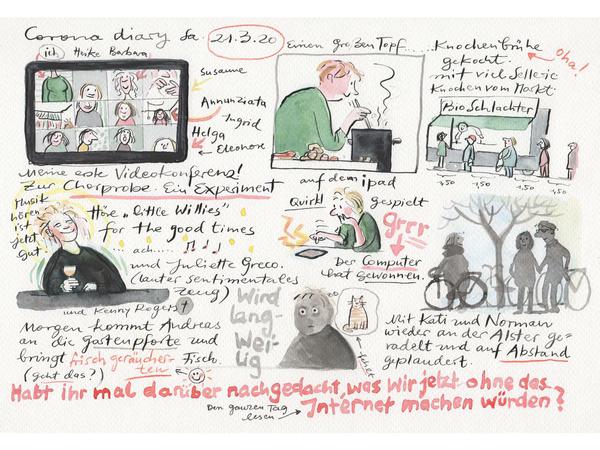 Corona diary Sa. 21.3.20
ich Heike Barbara
Susanne
Annunziata
Ingrid
Helga
Eleonore
Meine erste Videokonferenz!
Zur Chorprobe. Ein Experiment
Einen großen Topf....
Knochenbrühe
oha!
gekocht.
mit viel Sellerie
Knochen vom Markt.
Bio Schlachter
1,50 1,50 1,50 1,50
Musik
hören
ist
jetzt
gut
Höre „Little Willies"
for the good times
... ach .....
und Juliette Greco.
(lauter sentimentales
Zeug)
und Kenny Rogers †
auf dem ipad
Quirkl gespielt
grrr
Der Computer
hat gewonnen.
Morgen kommt Andreas
an die Gartenpforte und
bringt frisch geräucher-
ten Fisch.
(geht das?)
Wird
lang-
wei-
lig
Mit Kati und Norman
wieder an der Alster ge-
radelt und auf Abstand
geplaudert.
Habt ihr mal darüber nachgedacht, was wir jetzt ohne das
Internet machen würden?
Den ganzen Tag
lesen